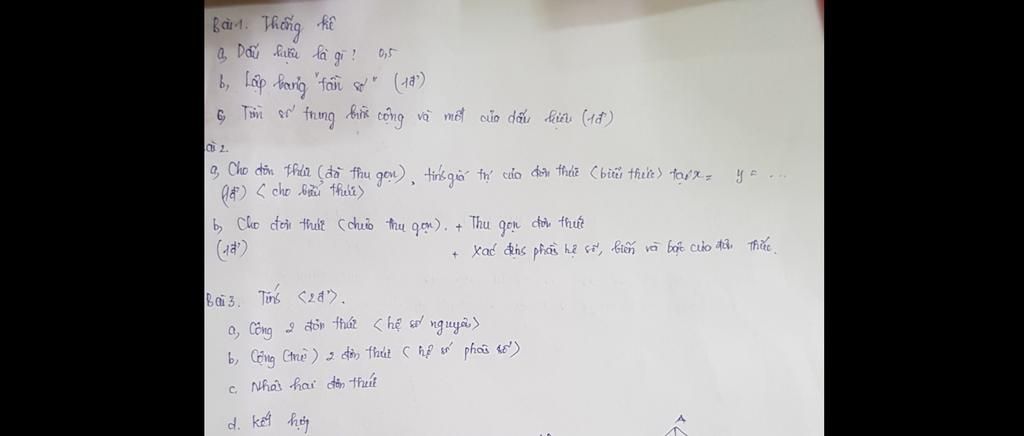 Bài 1. Thống kê
a, Dấu hiệu là gì? 0,5
b, Lập bảng "tần số" (1đ')
c, Tìm số trung bình cộng và mốt của dấu hiệu (1đ')
ài 2.
a, Cho đơn thức (đã thu gọn), tính giá trị của đơn thức <biểu thức> tại x = y = ...
(1đ') <cho biểu thức>
b, Cho đơn thức (chưa thu gọn). + Thu gọn đơn thức
(1đ') + Xác định phần hệ số, biến và bậc của đơn thức.
Bài 3. Tính <2đ'>.
a, Cộng 2 đơn thức <hệ số nguyên>
b, Cộng (trừ) 2 đơn thức (hệ số phân số)
c. Nhân hai đơn thức
d. Kết hợp
A